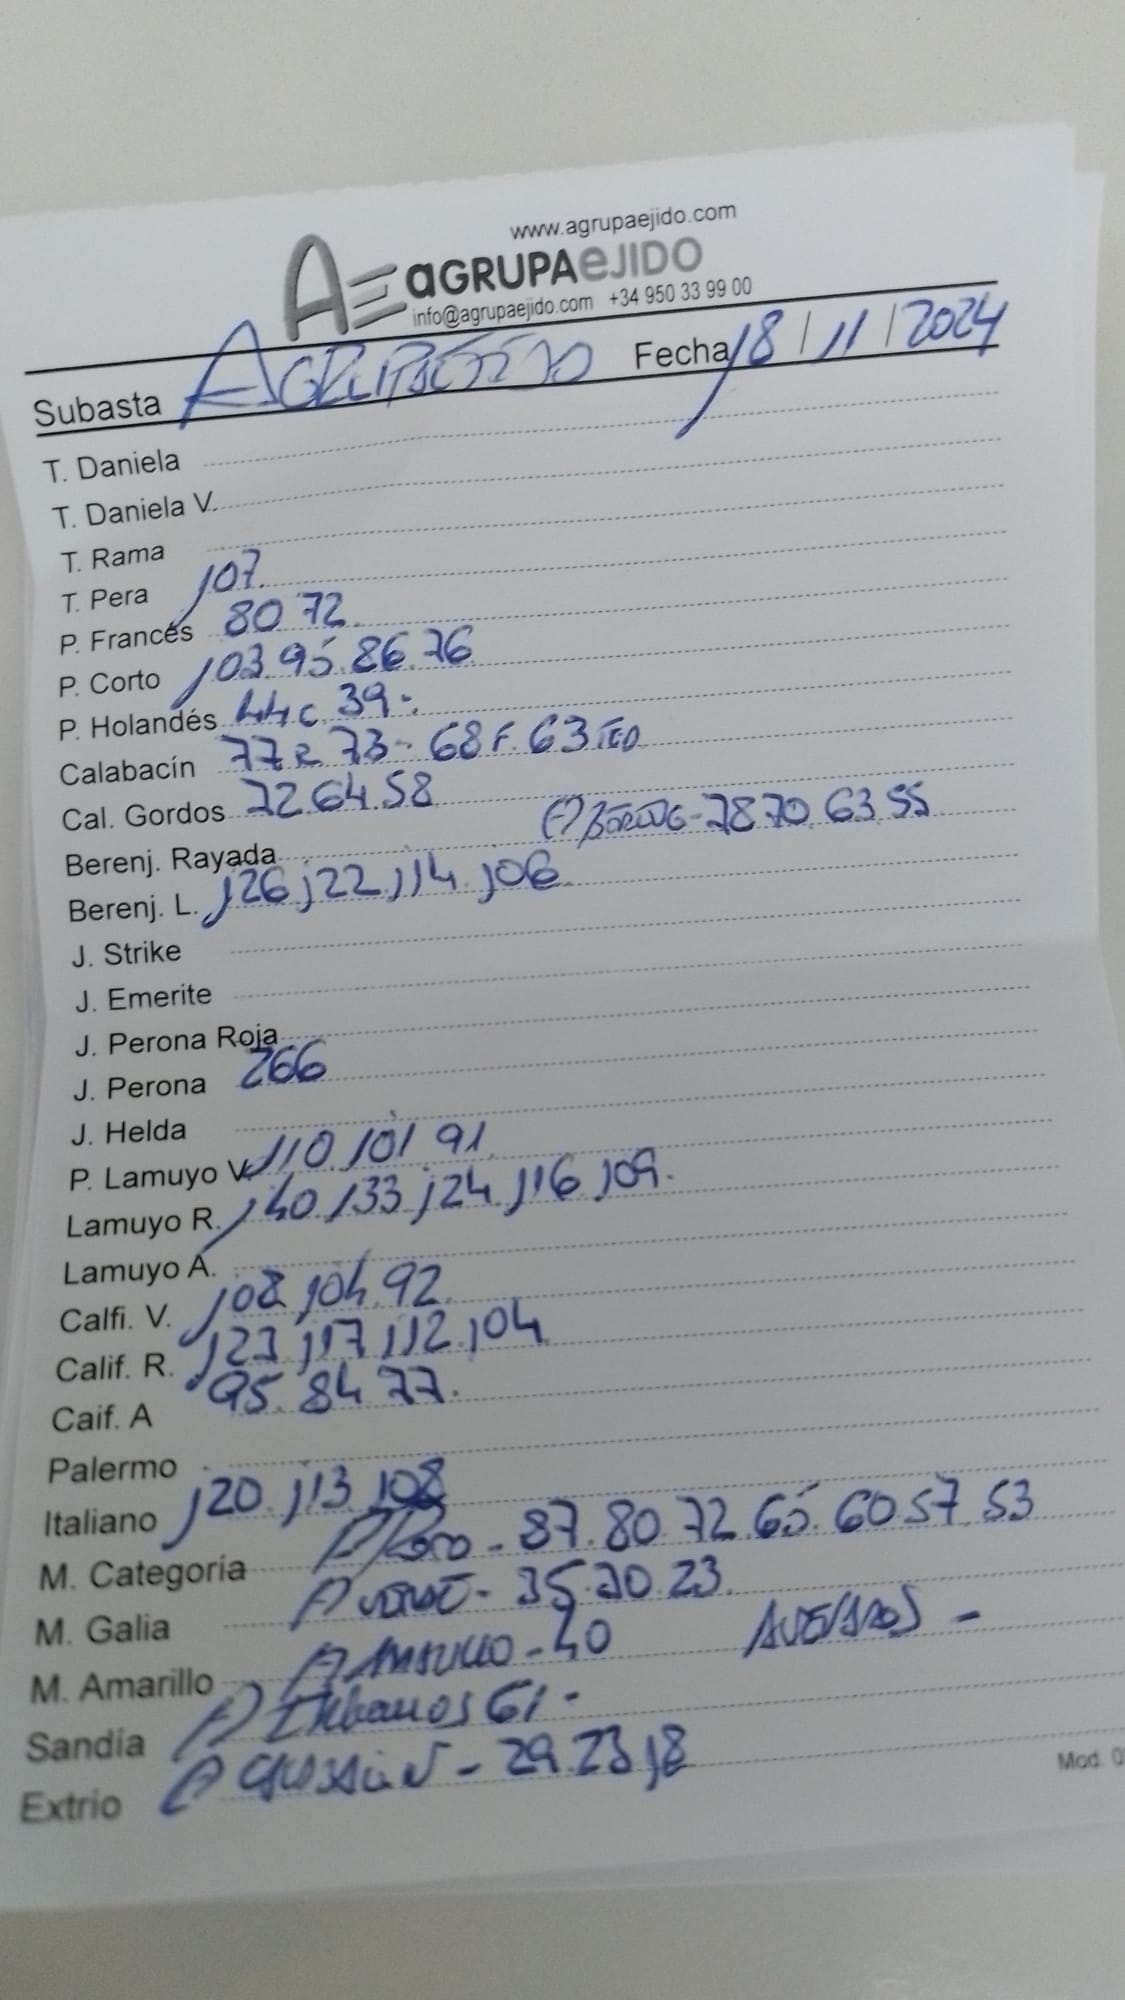 www.agrupaejido.com
AE aGRUPAeJIDO
info@agrupaejido.com +34 950 33 99 00
Subasta AGRUPAEJIDO Fecha 18/11/2024
T. Daniela
T. Daniela V.
T. Rama
T. Pera 107.
P. Francés 80 72.
P. Corto 103.95.86.76
P. Holandés 44c. 39-
Calabacín 77R 73- 68F. 63
Cal. Gordos 72.64.58
Berenj. Rayada 78 70. 63 55
Berenj. L. 126 122.114.106
J. Strike
J. Emerite
J. Perona Roja
J. Perona 266
J. Helda
P. Lamuyo V. 110.101 91
Lamuyo R. 140.133 124.116 109.
Lamuyo A.
Calfi. V. 108 104.92
Calif. R. 123 117 112.104
Caif. A 95. 84 77.
Palermo
Italiano 120 113 108
M. Categoría 87.80.72.65.60 57.53
M. Galia 35.30.23.
M. Amarillo 40
Sandía 61-
Extrio 29.23 18
Mod.